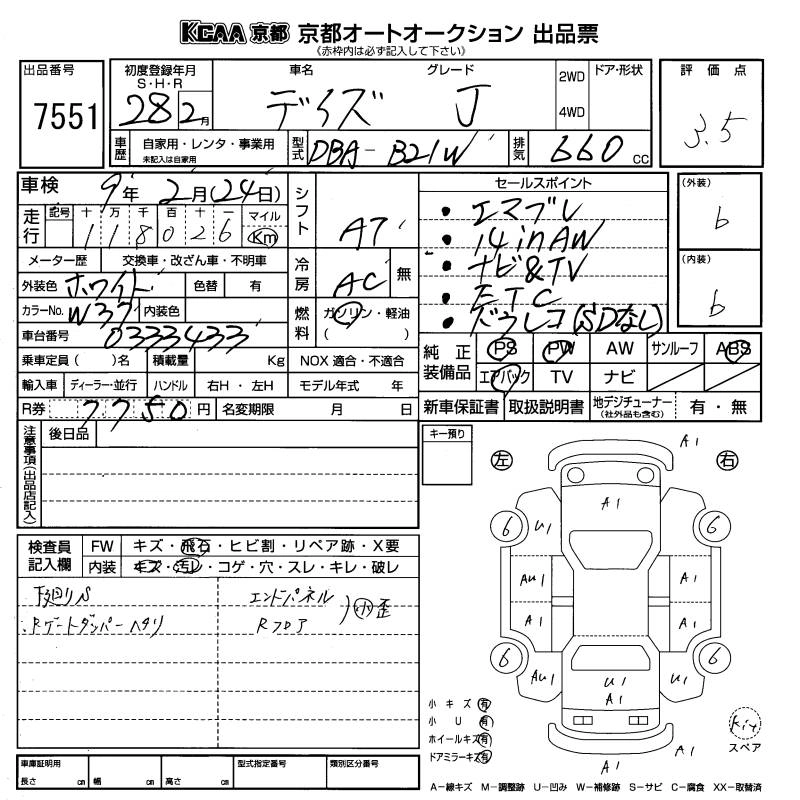 KCAA 京都 京都オートオークション 出品票
《赤枠内は必ず記入して下さい》
出品番号 7551
初度登録年月 S・H・R 28 2月
車名 デイズ
グレード J
2WD 4WD
ドア・形状
評価点 3.5
車歴 自家用・レンタ・事業用 未記入は自家用
型式 DBA-B21W
排気 660 CC
車検 9年 2月(24日)
シフト AT
セールスポイント
・エマブレ
・14inAW
・ナビ&TV
・ETC
・ドラレコ(SDなし)
(外装) b
(内装) b
走行 記号 十 万 千 百 十 一 マイル Km
118026
メーター歴 交換車・改ざん車・不明車
冷房 AC 無
外装色 ホワイト 色替 有
カラーNo. W37 内装色
燃料 ガソリン・軽油 ( )
車台番号 0333433
純正装備品 PS PW AW サンルーフ ABS
エアバック TV ナビ
乗車定員( )名 積載量 Kg NOX 適合・不適合
輸入車 ディーラー・並行 ハンドル 右H・左H モデル年式 年
R券 7750円 名変期限 月 日
新車保証書 取扱説明書 地デジチューナー (社外品も含む) 有・無
注意事項(出品店記入)
後日品
キー預り
左 右
検査員記入欄
FW キズ・飛石・ヒビ割・リペア跡・X要
内装 キズ・汚レ・コゲ・穴・スレ・キレ・破レ
下廻りS
Rゲートダンパーヘタリ
エンドパネル
Rフロア
小歪
A1
A1
6 U1 6
AU1 A1
A1 A1
6 AU1 U1 A1 U1 6
A1 A1
小キズ 有
小U 有
ホイールキズ 有
ドアミラーキズ 有
Kit
スペア
車庫証明用 長さ cm 幅 cm 高さ cm
型式指定番号
類別区分番号
A−線キズ M−調整跡 U−凹み W−補修跡 S−サビ C−腐食 XX−取替済